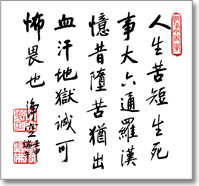 人生苦短生死
事大六通羅漢
憶昔墮苦猶出
血汗地獄誠可
怖畏也 淨空